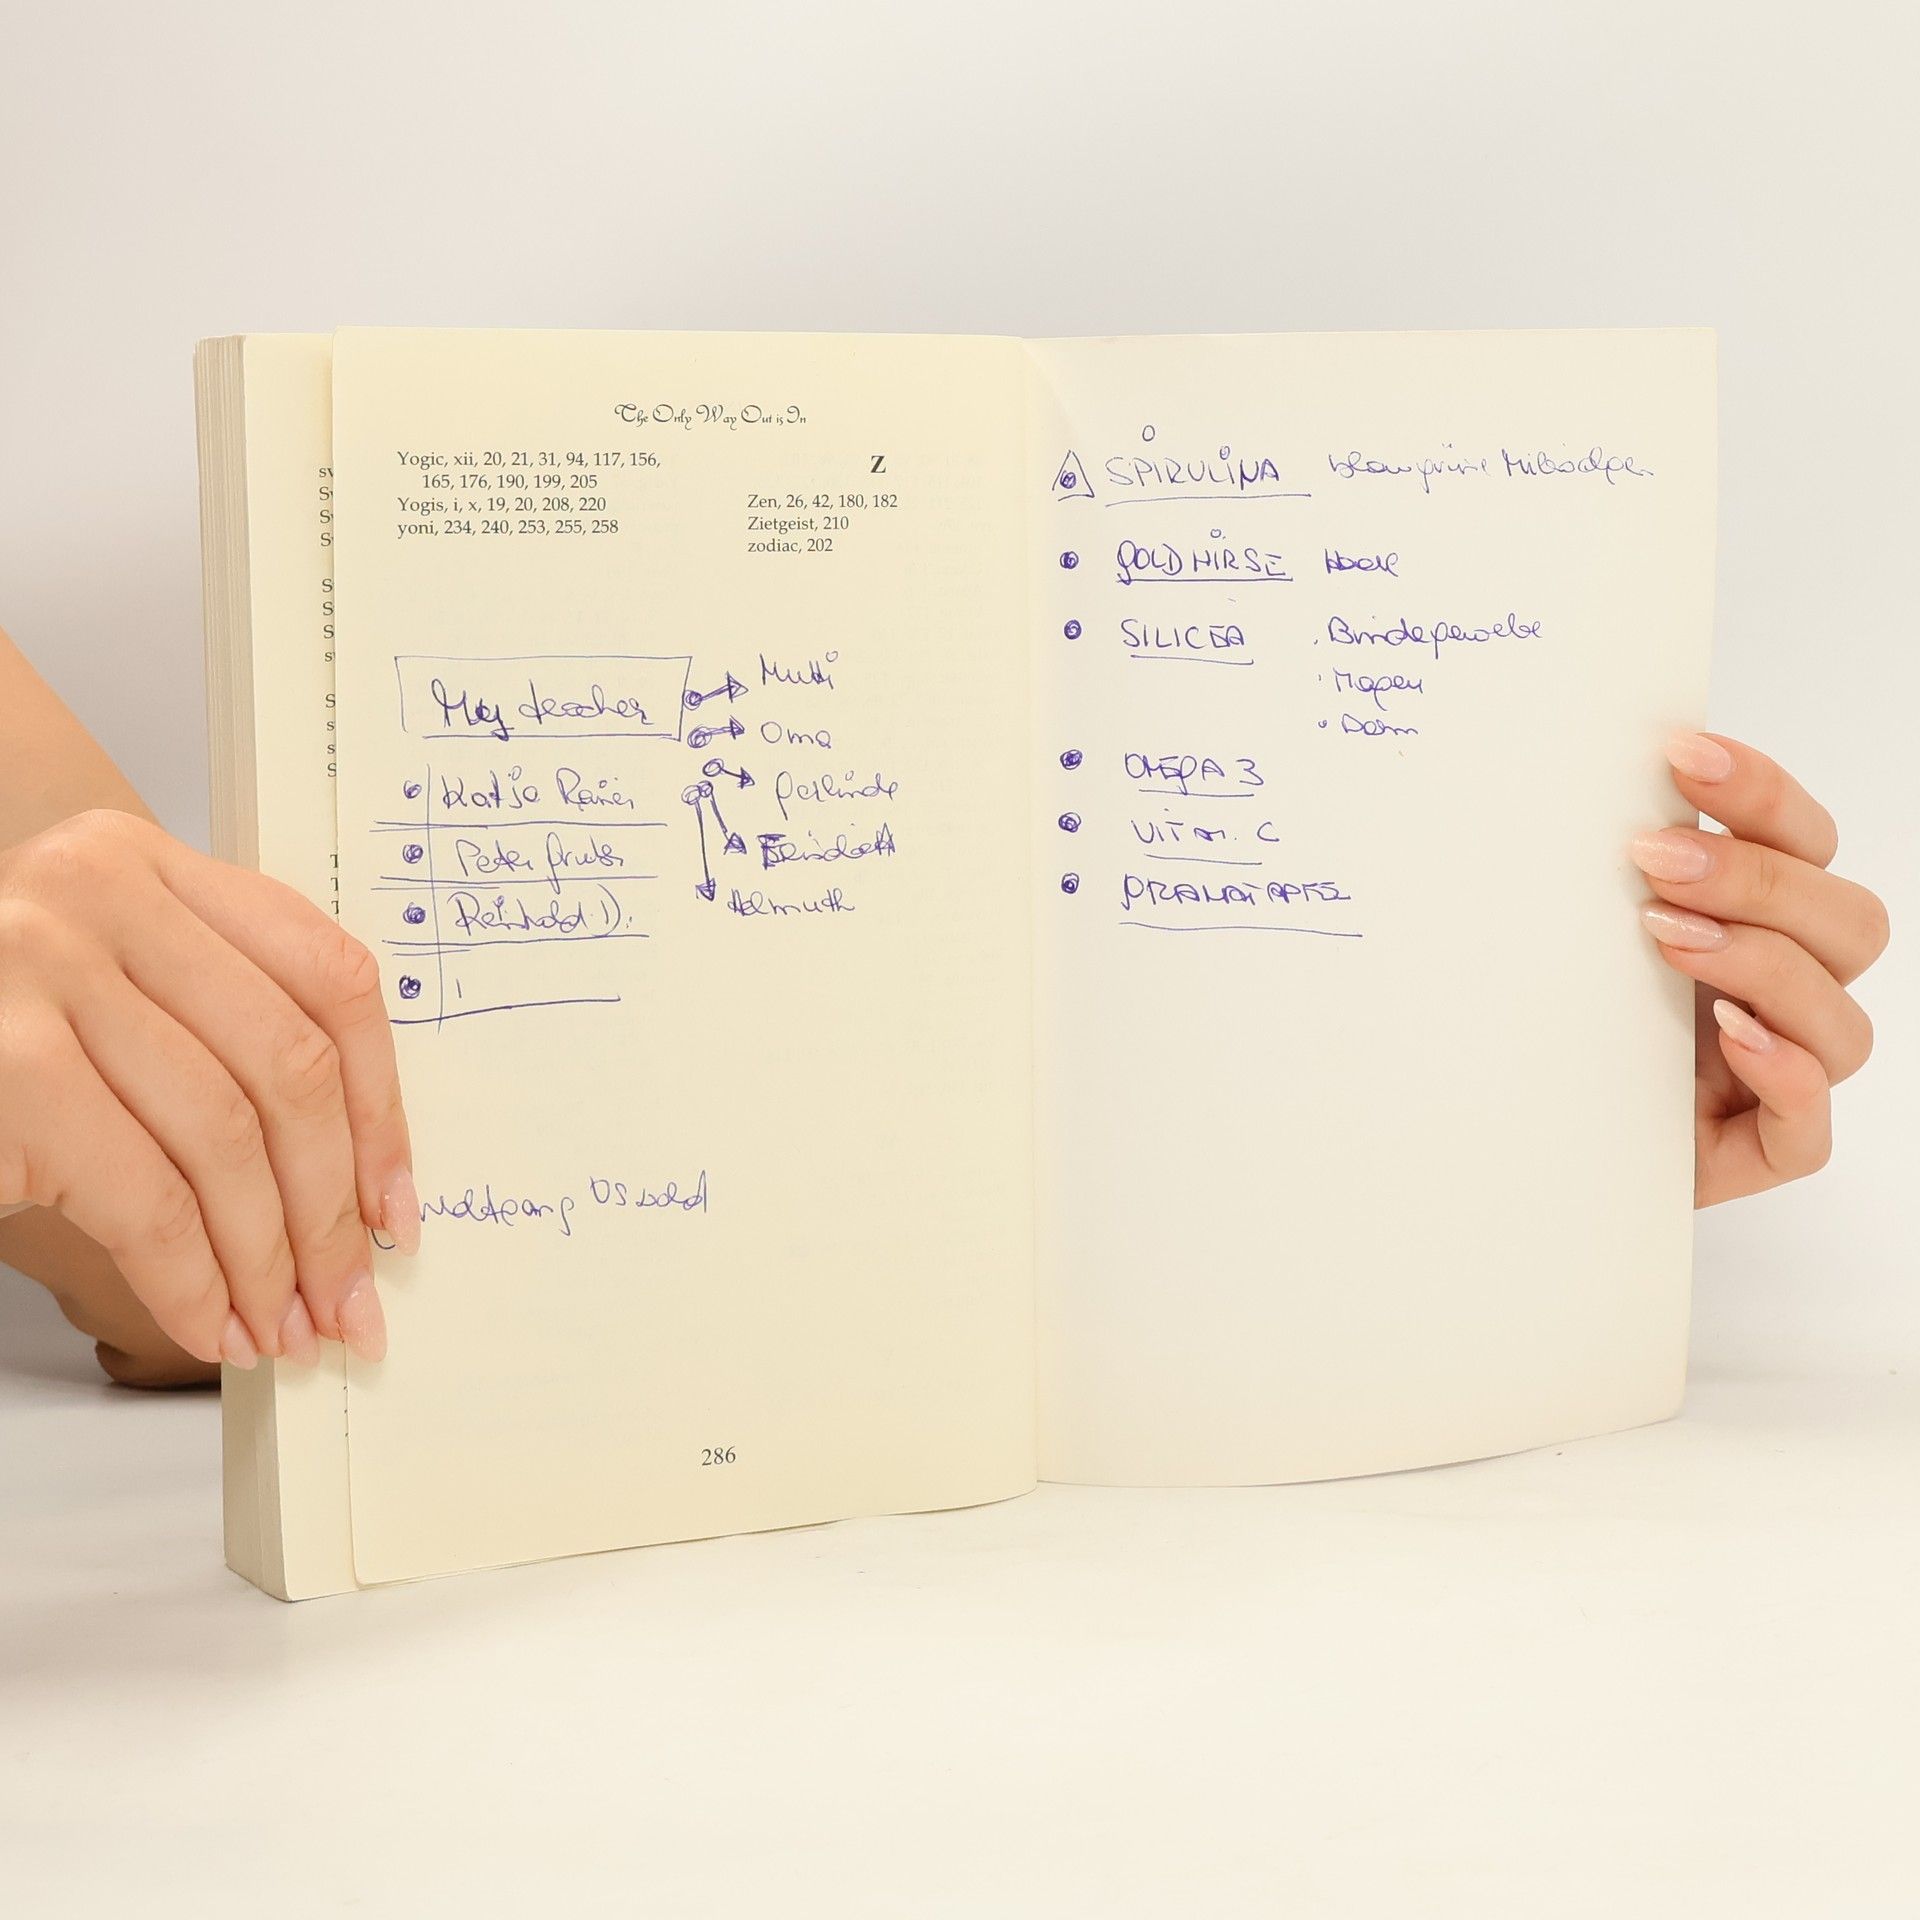 The Only Way Out is In
Yogic, xii, 20, 21, 31, 94, 117, 156,
165, 176, 190, 199, 205
Yogis, i, x, 19, 20, 208, 220
yoni, 234, 240, 253, 255, 258
Z
Zen, 26, 42, 180, 182
Zietgeist, 210
zodiac, 202
My teacher
Mutti
Oma
Gerlinde
Helmuth
Katja Rainer
Peter Gruber
Reinhold D.
Wolfgang Osswald
286
SPIRULINA blaugrüne Mikroalgen
GOLDHIRSE Haare
SILICEA . Bindegewebe
• Magen
• Darm
OMEGA 3
VITAM. C
GRANATAPFEL